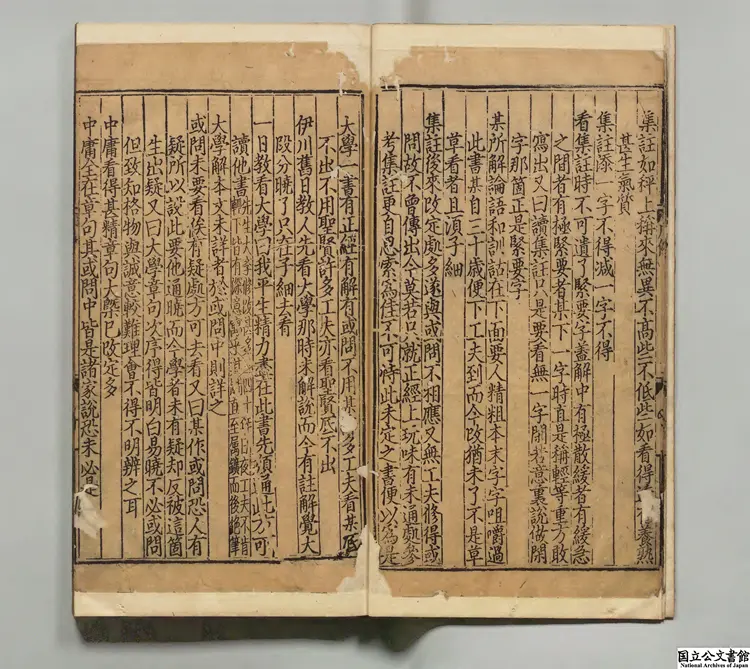 集註如秤上稱來無異不高些不低些如看得養熟
甚生氣質
集註添一字不得減一字不得
看集註時不可遺了緊要字蓋解中有極散緩者有緩急
之間者有極緊要者某下一字時直是稱輕等重方敢
寫出又曰讀集註只是要看無一字閑某意裏說做閑
字那箇正是緊要字
某所解論語和訓詁在下面要人精粗本末字字咀嚼過
此書某自三十歲便下工夫到而今改猶未了不是草
草看者且湏子細
集註後來改定處多遂與或問不相應又無工夫修得或
問故不曾傳出今莫若只就正經上玩味有未通處參
考集註更自思索為佳不可恃此未定之書便以為是
大學一書有正經有解有或問不用某多工夫看某底
不出不用聖賢許多工夫亦看聖賢底不出
伊川舊日教人先看大學那時未解說而今有註解覺大
段分曉了只在子細去看
一日教看大學曰我平生精力盡在此書先湏通此方可
讀他書先生大學日夜工夫不肯
直至屬纊而後絕筆
大學解本文未詳者於或問中則詳之
或問未要看俟有疑處方可去看又曰某作或問恐人有
疑所以設此要他通曉而今學者未有疑却反被這箇
生出疑又曰大學章句次序得皆明白易曉不必或問
但致知格物與誠意較難理會不得不明辨之耳
中庸看得甚精章句大槩已改定多
中庸全在章句其或問中皆是諸家說恐未必是
国立公文書館
National Archives of Japan